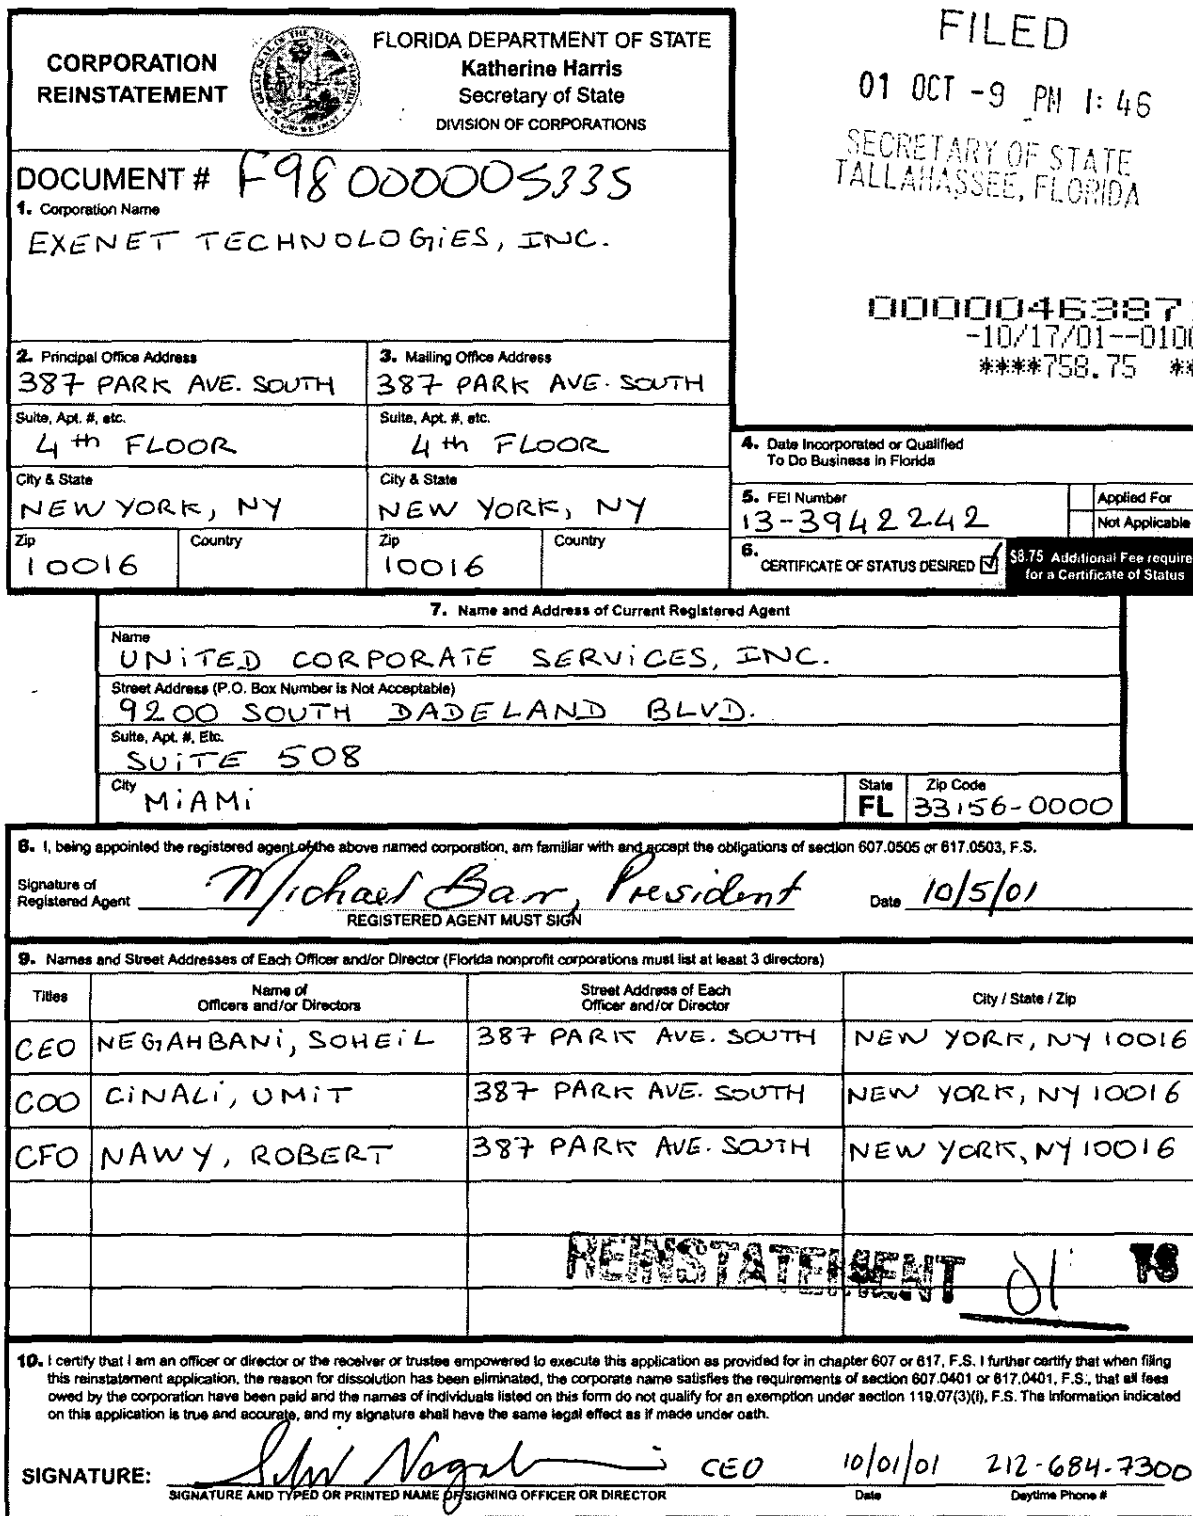 CORPORATION
REINSTATEMENT
FLORIDA DEPARTMENT OF STATE
Katherine Harris
Secretary of State
DIVISION OF CORPORATIONS
FILED
01 OCT -9 PM 1:46
SECRETARY OF STATE
TALLAHASSEE, FLORIDA
DOCUMENT # F98000005335
1. Corporation Name
EXENET TECHNOLOGIES, INC.
0000046387
-10/17/01--0100
****758.75 **
2. Principal Office Address
387 PARK AVE. SOUTH
Suite, Apt. #, etc.
4th FLOOR
City & State
NEW YORK, NY
Zip
Country
10016
3. Mailing Office Address
387 PARK AVE. SOUTH
Suite, Apt. #, etc.
4th FLOOR
City & State
NEW YORK, NY
Zip
Country
10016
4. Date Incorporated or Qualified
To Do Business in Florida
5. FEI Number
13-3942242
Applied For
Not Applicable
6. CERTIFICATE OF STATUS DESIRED
$8.75 Additional Fee require
for a Certificate of Status
7. Name and Address of Current Registered Agent
Name
UNITED CORPORATE SERVICES, INC.
Street Address (P.O. Box Number is Not Acceptable)
9200 SOUTH DADELAND BLVD.
Suite, Apt. #, Etc.
SUITE 508
City
MIAMI
State
FL
Zip Code
33156-0000
8. I, being appointed the registered agent of the above named corporation, am familiar with and accept the obligations of section 607.0505 or 617.0503, F.S.
Signature of
Registered Agent Michael Barr, President Date 10/5/01
REGISTERED AGENT MUST SIGN
9. Names and Street Addresses of Each Officer and/or Director (Florida nonprofit corporations must list at least 3 directors)
Titles
Name of
Officers and/or Directors
Street Address of Each
Officer and/or Director
City / State / Zip
CEO NEGAHBANI, SOHEIL 387 PARK AVE. SOUTH NEW YORK, NY 10016
COO CINALI, UMIT 387 PARK AVE. SOUTH NEW YORK, NY 10016
CFO NAWY, ROBERT 387 PARK AVE. SOUTH NEW YORK, NY 10016
REINSTATEMENT 01 TS
10. I certify that I am an officer or director or the receiver or trustee empowered to execute this application as provided for in chapter 607 or 617, F.S. I further certify that when filing
this reinstatement application, the reason for dissolution has been eliminated, the corporate name satisfies the requirements of section 607.0401 or 617.0401, F.S., that all fees
owed by the corporation have been paid and the names of individuals listed on this form do not qualify for an exemption under section 119.07(3)(i), F.S. The information indicated
on this application is true and accurate, and my signature shall have the same legal effect as if made under oath.
SIGNATURE: CEO 10/01/01 212-684-7300
SIGNATURE AND TYPED OR PRINTED NAME OF SIGNING OFFICER OR DIRECTOR
Date
Daytime Phone #